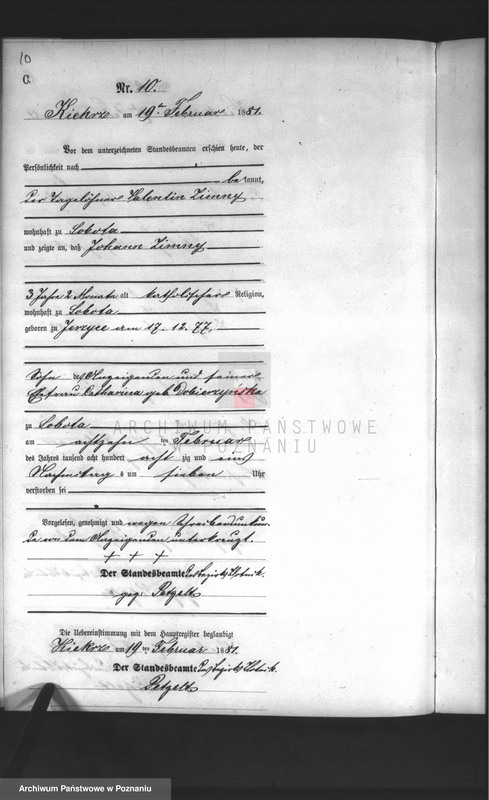 10
C
Nr. 10.
Kiekrz am 19ten Februar 1881.
Vor dem unterzeichneten Standesbeamten erschien heute, der
Persönlichkeit nach
bekannt,
der Tagelöhner Valentin Zimny
wohnhaft zu Sobota
und zeigte an, daß Johann Zimny
3 Jahr 2 Monate alt katholischer Religion,
wohnhaft zu Sobota
geboren zu Jerzyce am 17. 12. 77,
Sohn des Anzeigenden und seiner
Ehefrau Catharina geb. Dobierzyńska
zu Sobota
am achtzehnten Februar
des Jahres tausend acht hundert acht zig und eins
Nachmittags um sieben Uhr
verstorben sei
Vorgelesen, genehmigt und wegen Schreibensunkun-
de von dem Anzeigenden unterkreuzt.
+ + +
Der Standesbeamte
gez. Petzelt
Die Uebereinstimmung mit dem Hauptregister beglaubigt
Kiekrz am 19ten Februar 1881.
Der Standesbeamte
Petzelt
ARCHIWUM PAŃSTWOWE
W POZNANIU
Archiwum Państwowe w Poznaniu